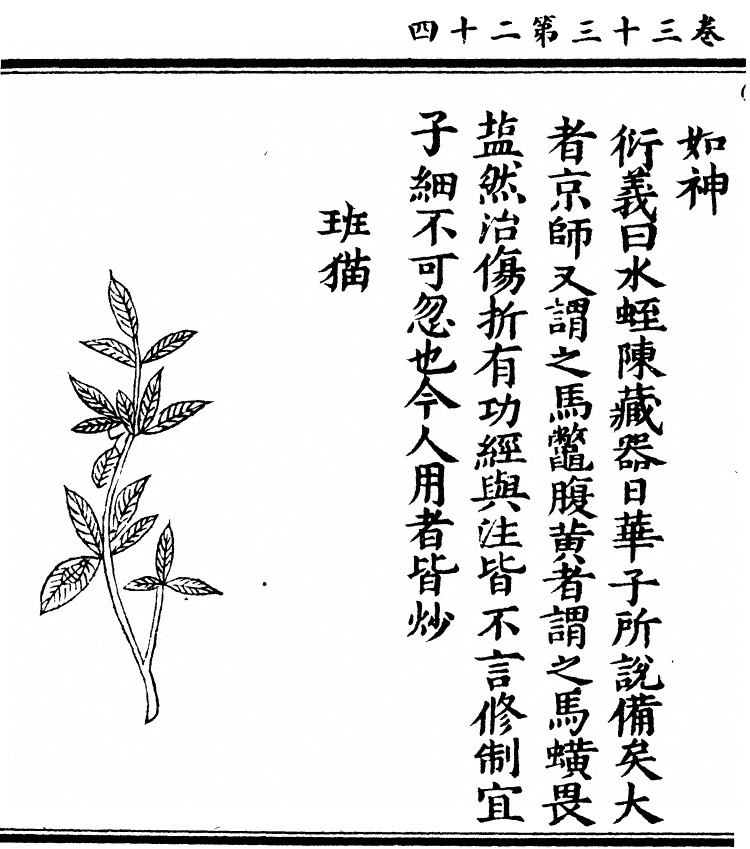 卷三十三第二十四
如神
衍義曰水蛭陳藏器日華子所說備矣大
者京師又謂之馬鼈腹黄者謂之馬蟥畏
塩然治傷折有功經與注皆不言修制宜
子細不可忽也今人用者皆炒
班猫